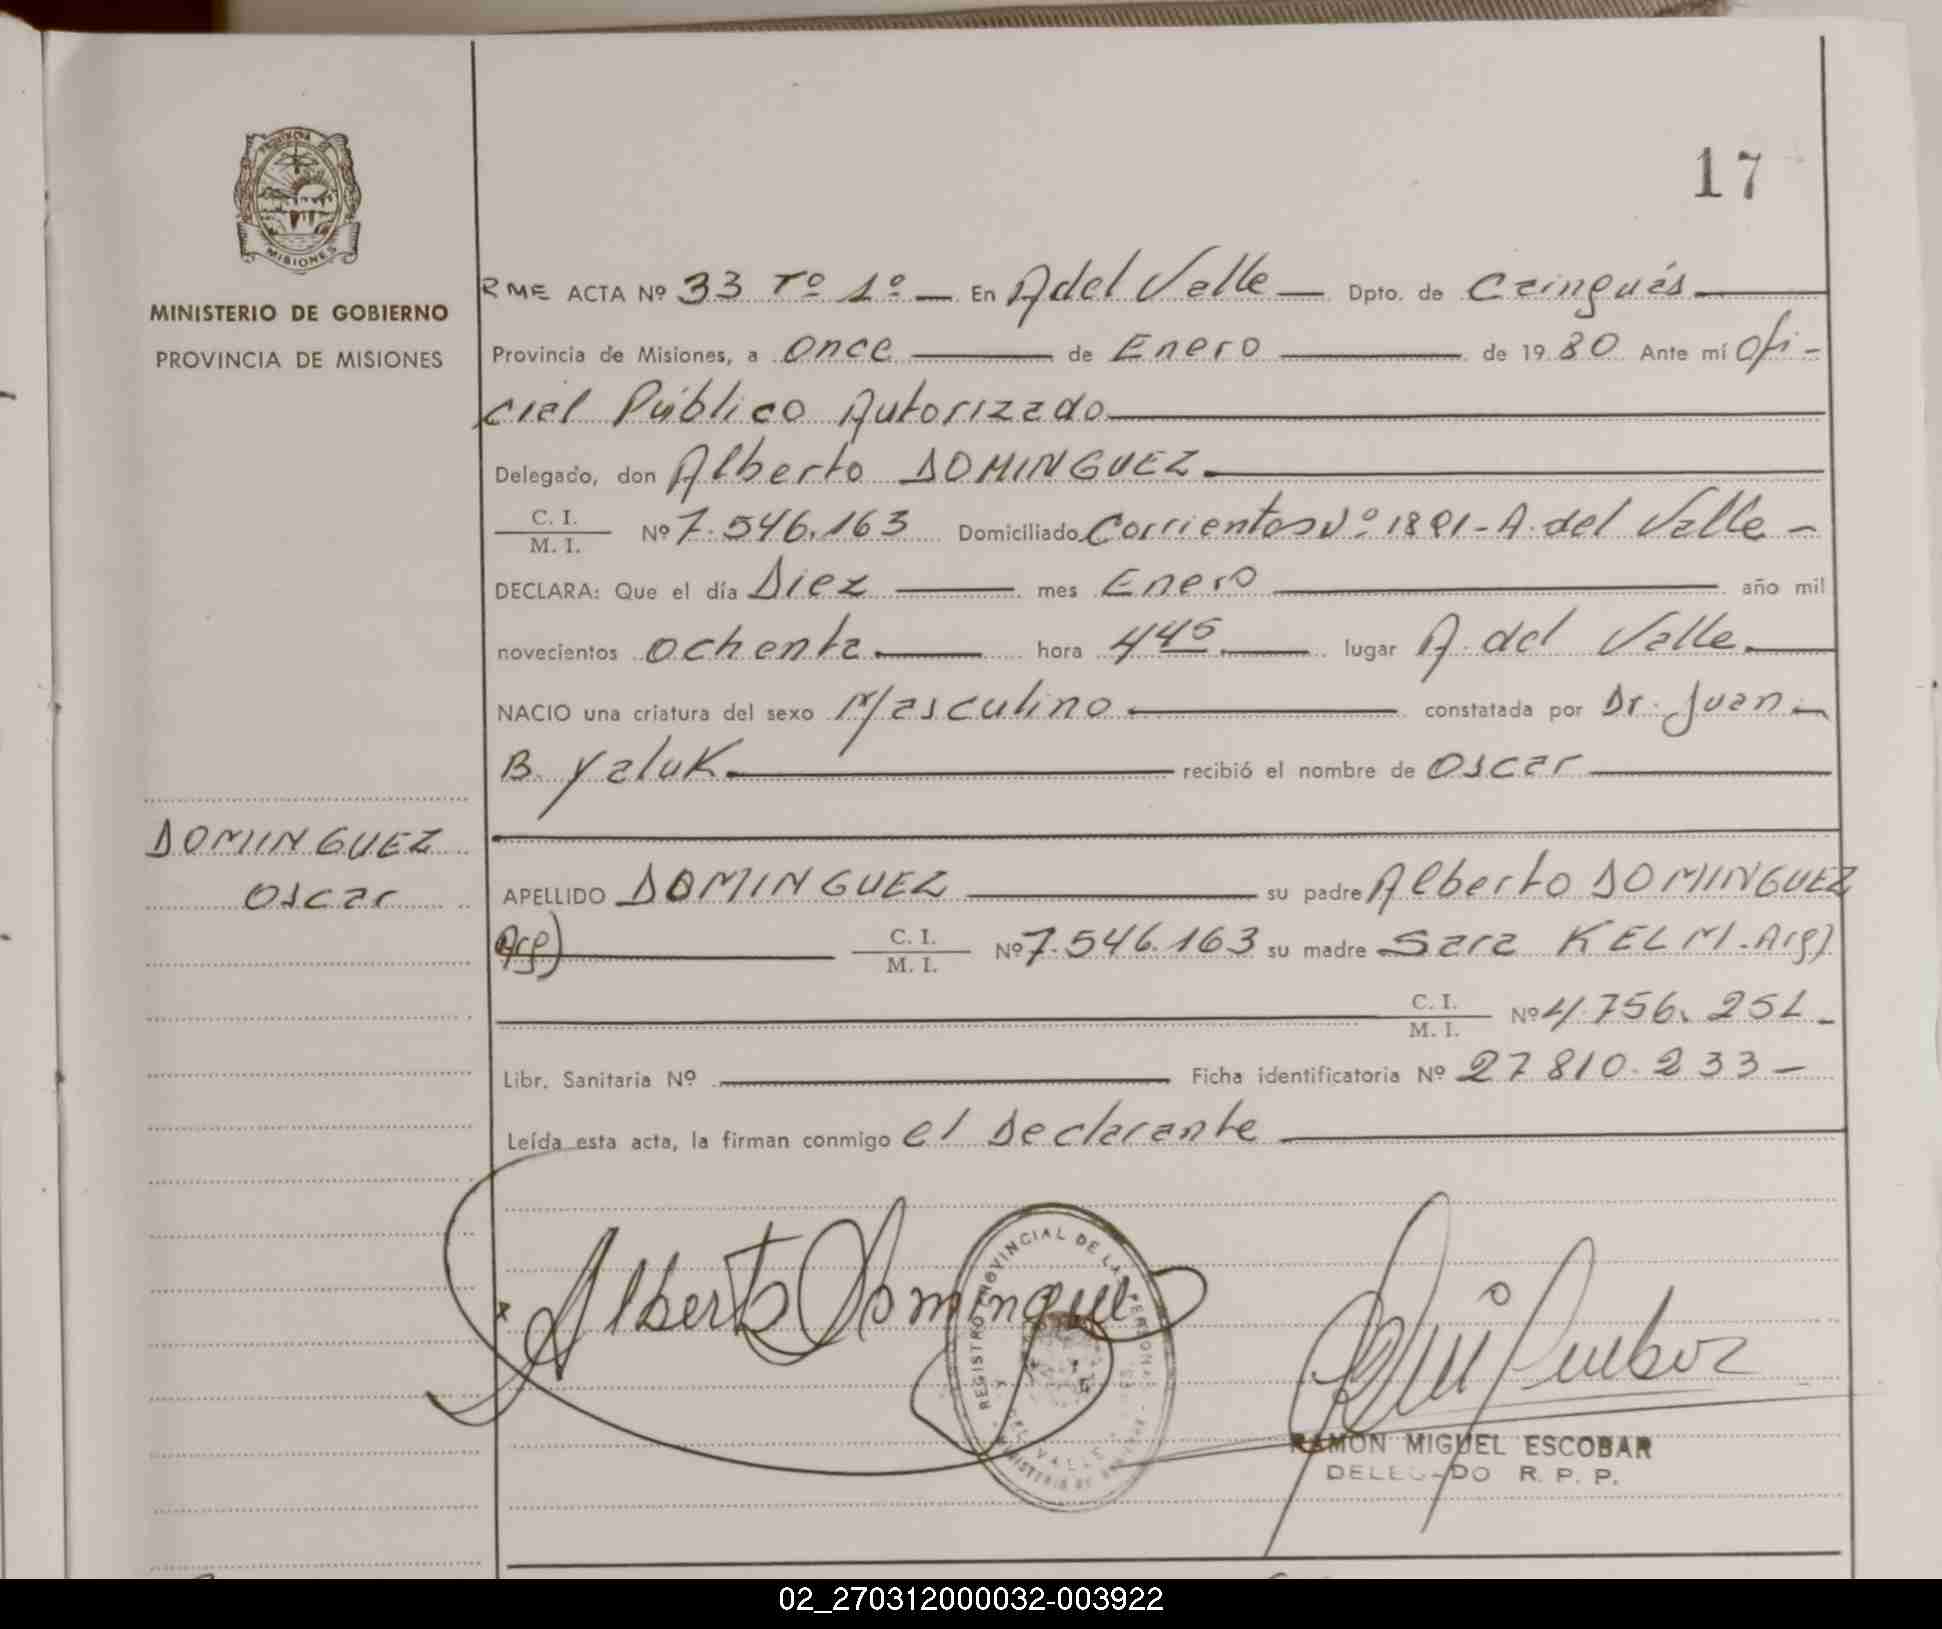 17
PROVINCIA DE
MISIONES
MINISTERIO DE GOBIERNO
PROVINCIA DE MISIONES
RME ACTA Nº 33 Tº 1º — En A del Valle — Dpto. de Cainguás
Provincia de Misiones, a Once de Enero de 1980 Ante mí Ofi-
cial Público Autorizado
Delegado, don Alberto DOMINGUEZ
C. I.
M. I. Nº 7.546.163 Domiciliado Corrientes Nº 1891 - A. del Valle -
DECLARA: Que el día Diez mes Enero año mil
novecientos ochenta hora 4 45 lugar A. del Valle
NACIO una criatura del sexo Masculino constatada por Dr. Juan
B. Yaluk recibió el nombre de Oscar
DOMINGUEZ
Oscar
APELLIDO DOMINGUEZ su padre Alberto DOMINGUEZ
Arg) C. I.
M. I. Nº 7.546.163 su madre Sara KELM. Arg)
C. I.
M. I. Nº 4.756.251 -
Libr. Sanitaria Nº Ficha identificatoria Nº 27810.233 -
Leída esta acta, la firman conmigo el Declarante
x Alberto Dominguez
REGISTRO PROVINCIAL DE LAS PERSONAS
DEL VALLE
MINISTERIO DE
RAMON MIGUEL ESCOBAR
DELEGADO R. P. P.
02_270312000032-003922